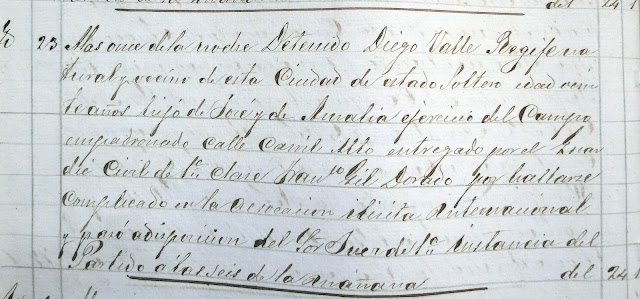 del 24
23 Alas once de la noche Detenido Diego Valle Regife na
tural y vecino de esta Ciudad de estado Soltero edad vein
te años hijo de José y de Amalia ejercicio del Campo
empadronado calle Carril Alto entregado por el Guar
dia Civil de 1ª clase Franco Gil Dorado por hallarse
Complicado en la Asociacion ilisita Internacional
y pasó a disposicion del Sor Juez de 1ª instancia del
Partido á las seis de la mañana del 24